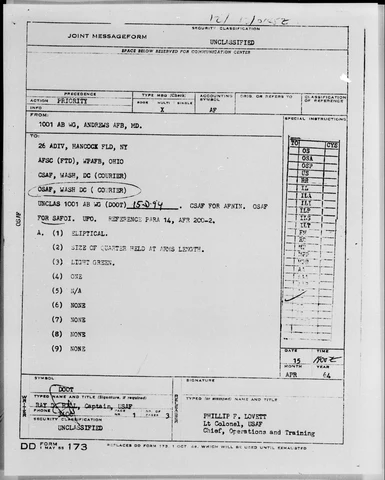 SECURITY CLASSIFICATION
JOINT MESSAGEFORM
UNCLASSIFIED
SPACE BELOW RESERVED FOR COMMUNICATION CENTER
PRECEDENCE
TYPE MSG (Check)
ACCOUNTING SYMBOL
ORIG. OR REFERS TO
CLASSIFICATION OF REFERENCE
ACTION PRIORITY
BOOK MULTI SINGLE
INFO
X
AF
FROM:
SPECIAL INSTRUCTIONS
1001 AB WG, ANDREWS AFB, MD.
TO:
26 ADIV, HANCOCK FLD, NY
AFSC (FTD), WPAFB, OHIO
CSAF, WASH, DC (COURIER)
OSAF, WASH DC (COURIER)
UNCLAS 1001 AB WG (DOOT) 15-D-94. CSAF FOR AFNIN. OSAF
FOR SAFOI. UFO. REFERENCE PARA 14, AFR 200-2.
A. (1) ELIPTICAL.
(2) SIZE OF QUARTER HELD AT ARMS LENGTH.
(3) LIGHT GREEN.
(4) ONE
(5) N/A
(6) NONE
(7) NONE
(8) NONE
(9) NONE
TO
CYS
OS
OSA
OSP
DATE
TIME
15
MONTH
YEAR
APR
64
SYMBOL
DOOT
SIGNATURE
TYPED NAME AND TITLE (Signature, if required)
TYPED (or stamped) NAME AND TITLE
Captain, USAF
PHONE
PAGE NR. 1
OF PAGES 3
SECURITY CLASSIFICATION
UNCLASSIFIED
PHILLIP F. LOVETT
Lt Colonel, USAF
Chief, Operations and Training
DD FORM 173
1 MAY 55
REPLACES DD FORM 173, 1 OCT 49, WHICH WILL BE USED UNTIL EXHAUSTED